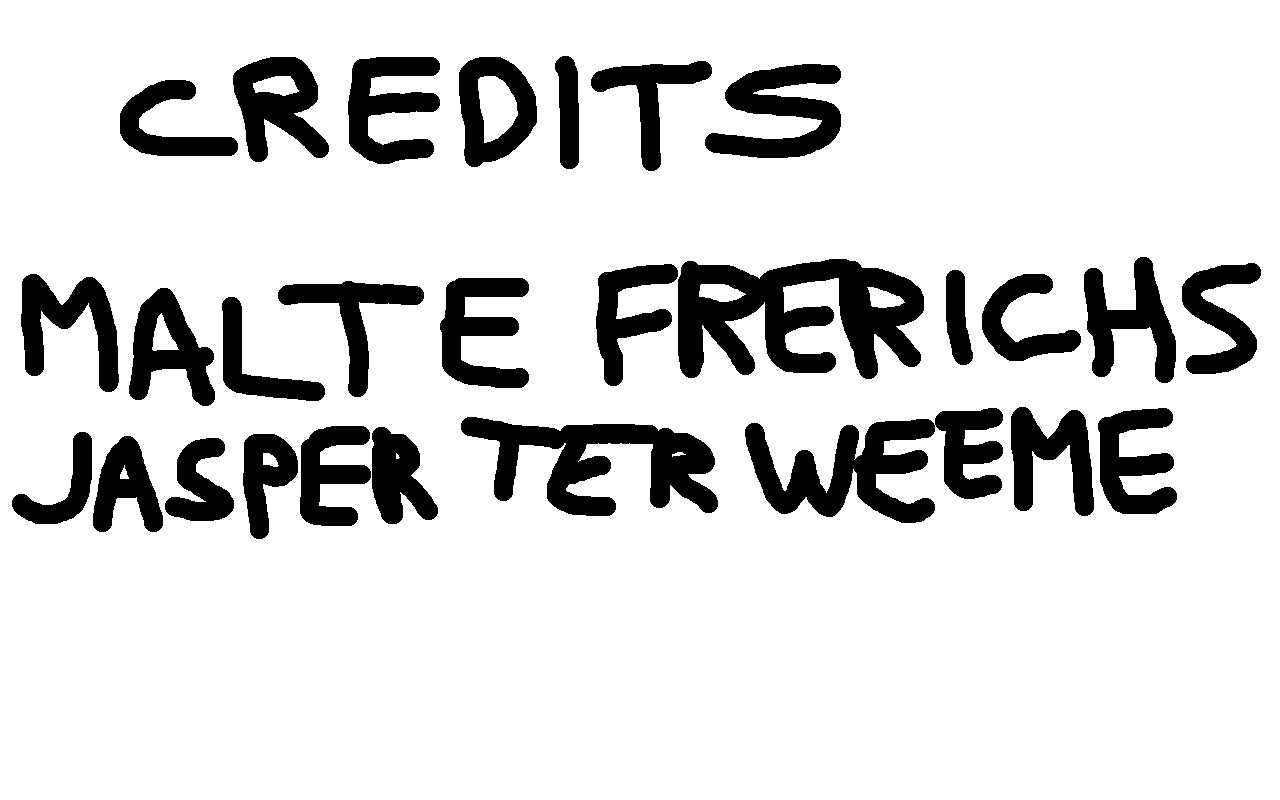 CREDITS
MALTE FRERICHS
JASPER TER WEEME